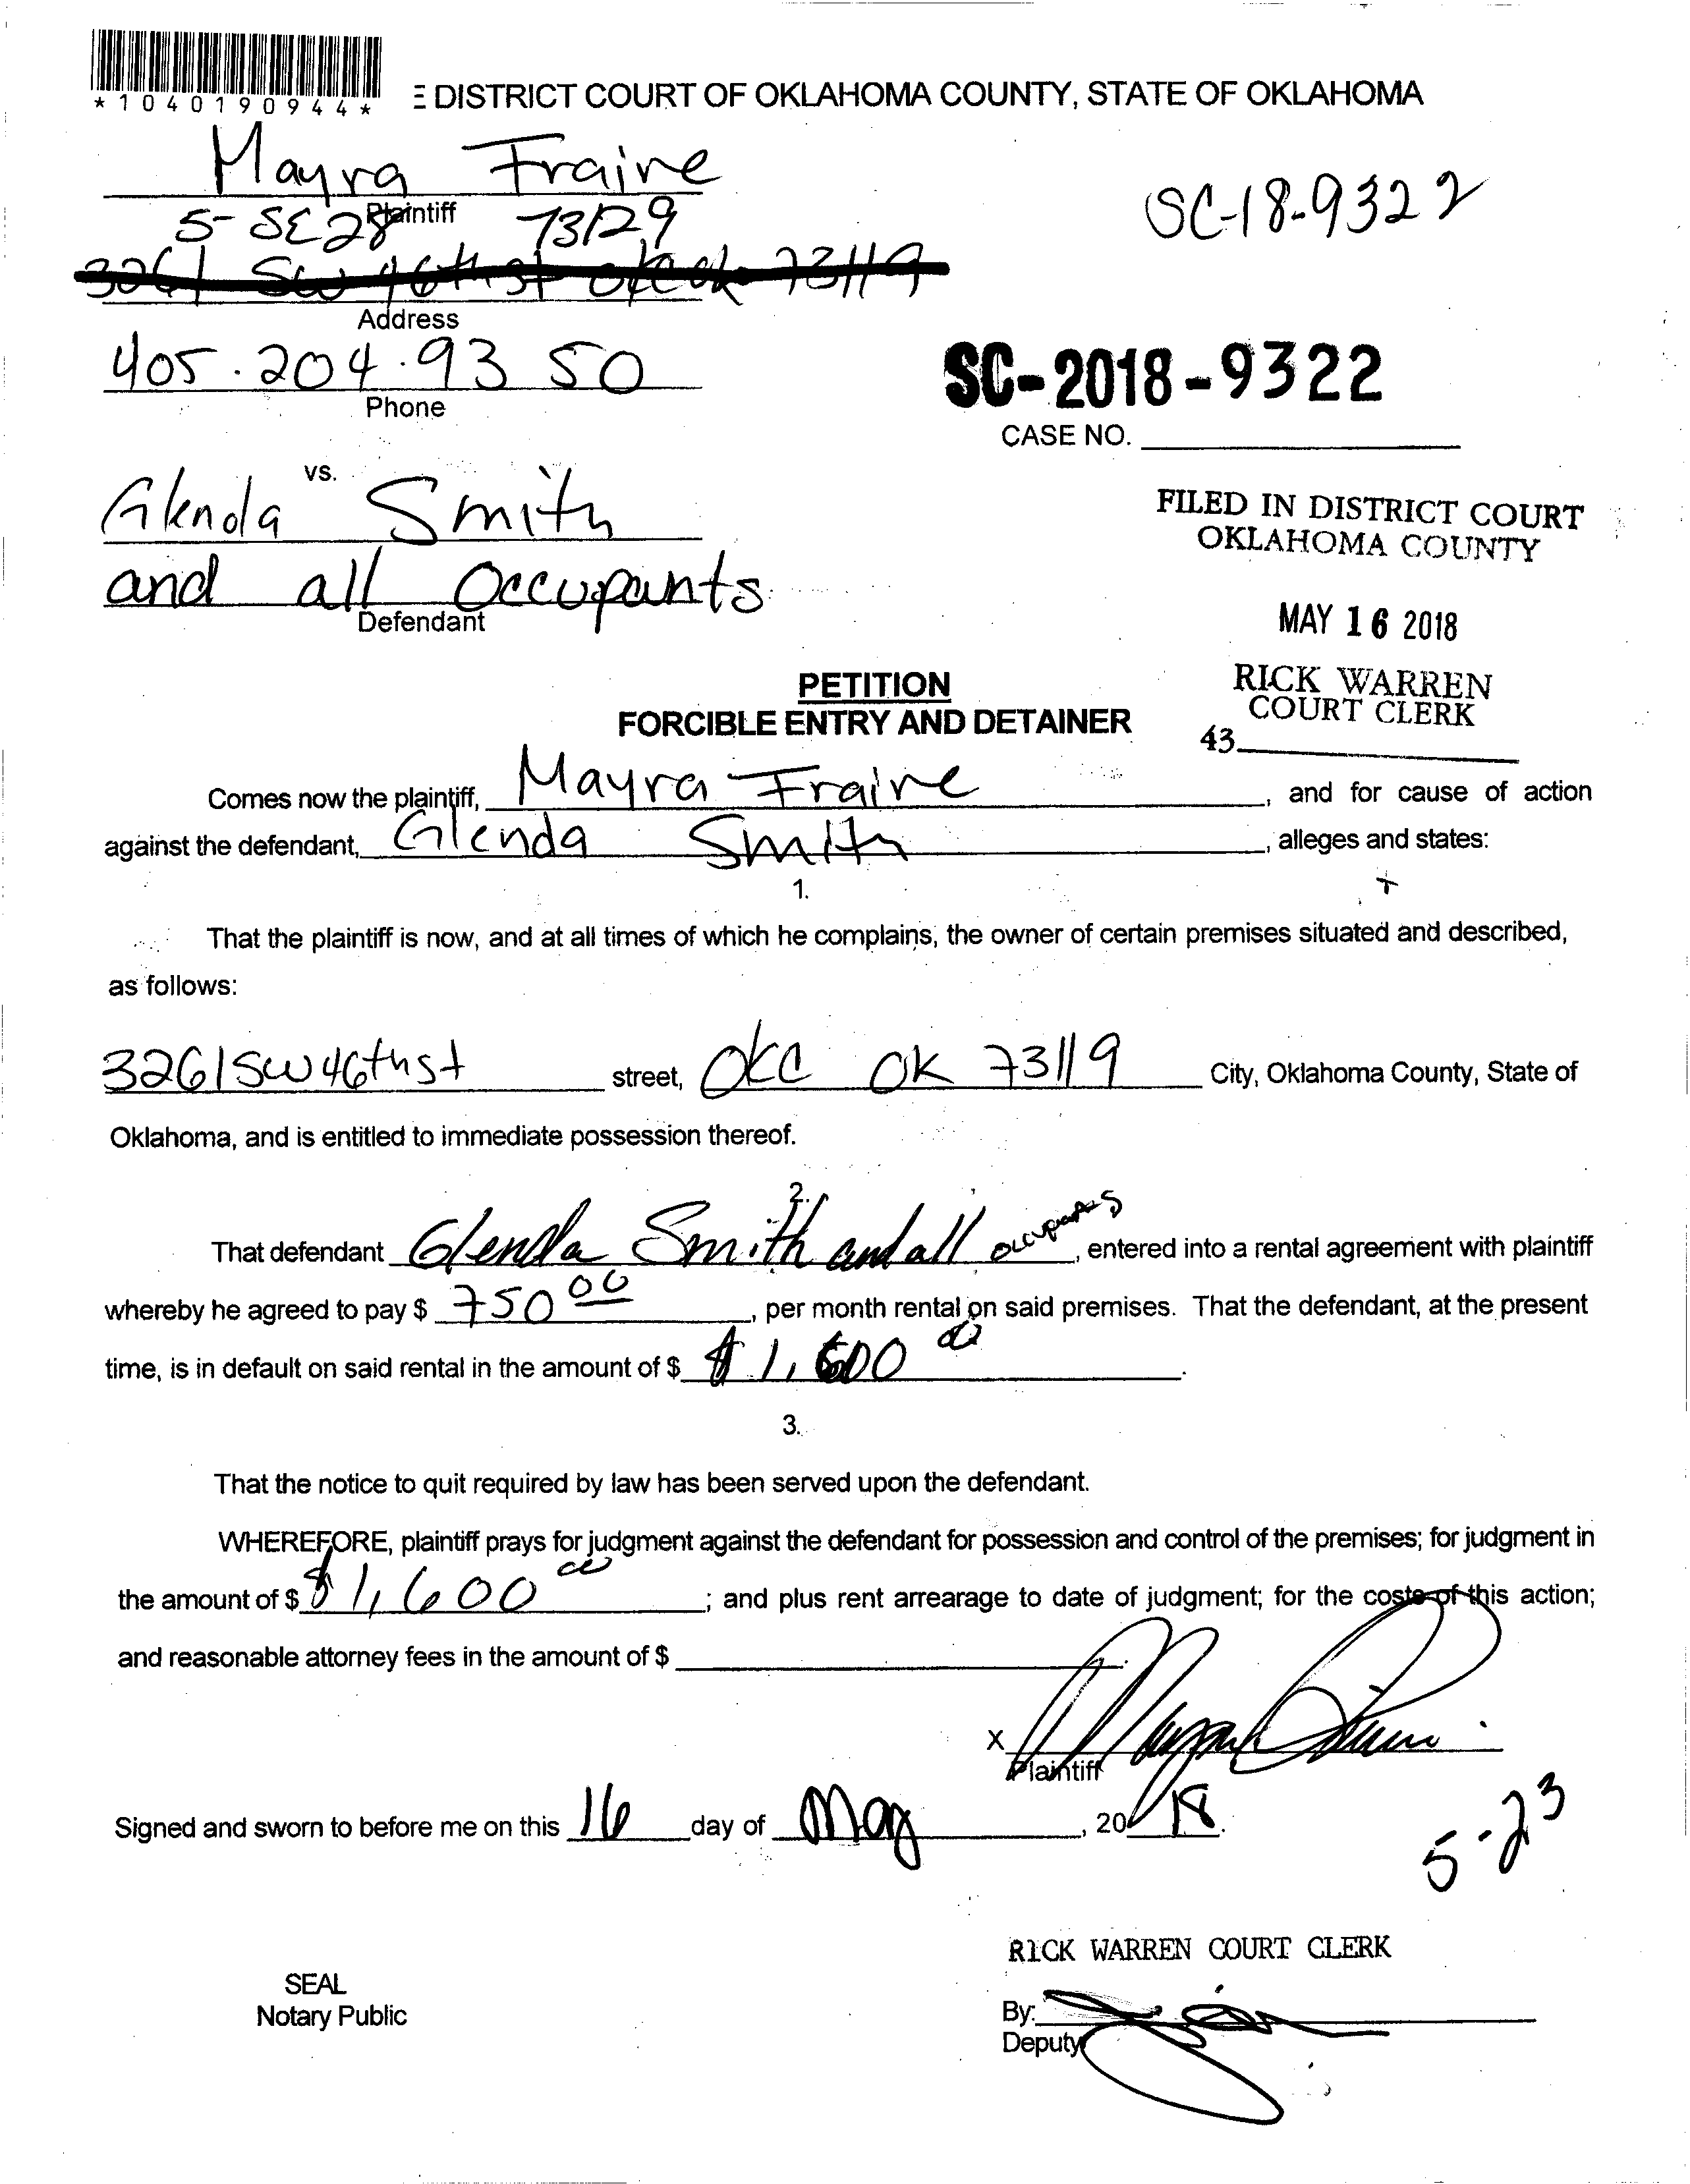 *1040190944*
E DISTRICT COURT OF OKLAHOMA COUNTY, STATE OF OKLAHOMA
Mayra Fraire
Plaintiff
5- SE 28 73129
3261 SW 46th st 73119
Address
405.204.9350
Phone
SC-18-9322
SC-2018-9322
CASE NO.
vs.
Glenda Smith
and all Occupants
Defendant
FILED IN DISTRICT COURT
OKLAHOMA COUNTY
MAY 16 2018
RICK WARREN
COURT CLERK
43
PETITION
FORCIBLE ENTRY AND DETAINER
Comes now the plaintiff, Mayra Fraire, and for cause of action
against the defendant, Glenda Smith, alleges and states:
1.
That the plaintiff is now, and at all times of which he complains, the owner of certain premises situated and described,
as follows:
3261 SW 46th st street, OKC OK 73119 City, Oklahoma County, State of
Oklahoma, and is entitled to immediate possession thereof.
2.
That defendant Glenda Smith and all occupants, entered into a rental agreement with plaintiff
whereby he agreed to pay $ 750 00, per month rental on said premises. That the defendant, at the present
time, is in default on said rental in the amount of $ $ 1,600 00.
3.
That the notice to quit required by law has been served upon the defendant.
WHEREFORE, plaintiff prays for judgment against the defendant for possession and control of the premises; for judgment in
the amount of $ $ 1,600 00; and plus rent arrearage to date of judgment; for the costs of this action;
and reasonable attorney fees in the amount of $
X
Plaintiff
Signed and sworn to before me on this 16 day of May, 20 18.
5-23
RICK WARREN COURT CLERK
SEAL
Notary Public
By:
Deputy